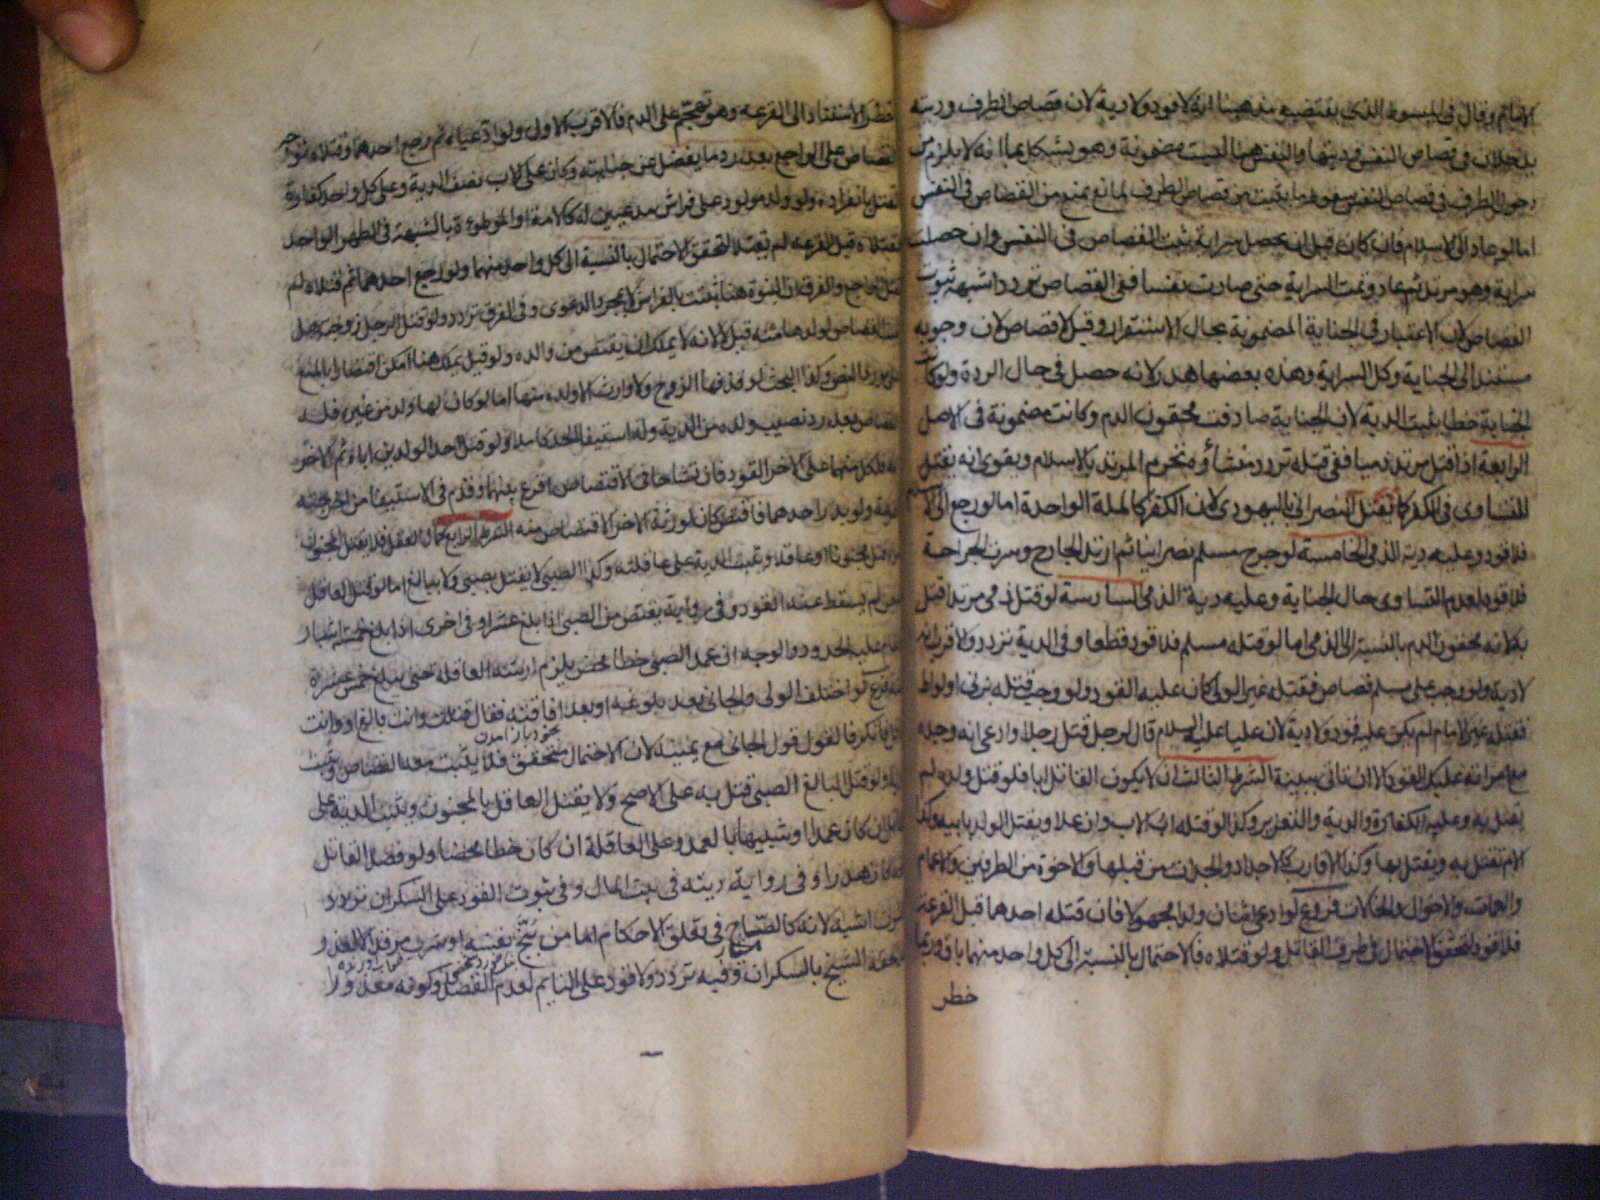 الامام وقال في المبسوط الذي يقتضيه مذهبنا انه لا قود ولا دية لان قصاص الطرف وديته
يدخلان في قصاص النفس وديتها والنفس هنا ليست مضمونة وهو يشكل بما انه لا يلزم من
دخول الطرف في قصاص النفس سقوط ما يثبت من قصاص الطرف لمانع يمنع من القصاص في النفس
اما لو عاد الى الاسلام فان كان قبل ان يحصل سراية ثبت القصاص في النفس وان حصلت
سراية وهو مرتد ثم عاد وتمت السراية حتى صارت نفسا ففي القصاص تردد اشبهه ثبوت
القصاص لان الاعتبار في الجناية المضمونة بحال الاستقرار وقيل لا قصاص لان وجوبه
مستند الى الجناية وكل السراية وهذه بعضها هدر لانه حصل في حال الردة ولو كانت
الجناية خطا يثبت الدية لان الجناية صادفت محقون الدم وكانت مضمونة في الاصل
الرابعة اذا قتل مرتد ذميا ففي قتله تردد منشأؤه تحرم المرتد بالاسلام ويقوى انه يقتل
للتساوى في الكفر كما يقتل النصراني باليهودي لان الكفر كالملة الواحدة اما لو رجع الى الاسلام
فلا قود وعليه دية الذمي الخامسة لو جرح مسلم نصرانيا ثم ارتد الجارح وسرت الجراحة
فلا قود لعدم التساوى حال الجناية وعليه دية الذمي السادسة لو قتل ذمي مرتدا قتل
به لانه محقون الدم بالنسبة الى الذمي اما لو قتله مسلم فلا قود قطعا وفي الدية تردد والاقرب انه
لا دية ولو وجب على مسلم قصاص فقتله غير الولي كان عليه القود ولو وجب قتله بزنى او لواط
فقتله غير الامام لم يكن عليه قود ولا دية لان عليا عليه السلام قال لرجل قتل رجلا وادعى انه وجده
مع امراته عليك القود الا ان تاتي ببينة الشرط الثالث ان لا يكون القاتل ابا فلو قتل ولده لم
يقتل به وعليه الكفارة والدية والتعزير وكذا لو قتله اب الاب وان علا ويقتل الولد بابيه وكذا
الام تقتل به ويقتل بها وكذا الاقارب كالاجداد والجدات من قبلها والاخوة من الطرفين والاعمام
والعمات والاخوال والخالات فروع لو ادعى اثنان ولدا مجهولا فان قتله احدهما قبل القرعة
فلا قود لتحقق الاحتمال في طرف القاتل ولو قتلاه فالاحتمال بالنسبة الى كل واحد منهما باق وربما
خطر
خطر الاستناد الى القرعة وهو تهجم على الدم فالاقرب الاول ولو ادعياه ثم رجع احدهما وقتلاه توجه
القصاص على الراجع بعد رد ما يفضل عن جنايته وكان على الاب نصف الدية وعلى كل واحد كفارة
القتل بانفراده ولو ولد مولود على فراش مدعيين له كالامة او الموطوءة بالشبهة في الطهر الواحد
فقتلاه قبل القرعة لم يقتلا لتحقق الاحتمال بالنسبة الى كل واحد منهما ولو رجع احدهما ثم قتلاه لم
يقتل الراجع والفرق ان البنوة هنا ثبتت بالفراش لا بمجرد الدعوى وفي الفرق تردد ولو قتل الرجل زوجته هل
يثبت القصاص لولدها منه قيل لا لانه لا يملك ان يقتص من والده ولو قيل يملك هنا امكن اقتصارا بالمنع
على مورد النص وكذا البحث لو قذفها الزوج ولا وارث الا ولده منها اما لو كان لها ولد من غيره فله
القصاص بعد رد نصيب ولده من الدية وله استيفا الحد كاملا ولو قتل احد الولدين اباه ثم الاخر
امه فلكل منهما على الاخر القود فان تشاحا في الاقتصاص اقرع بينهما وقدم في الاستيفا من اخرجته
القرعة ولو بدر احدهما فاقتص كان لورثة الاخر الاقتصاص منه الشرط الرابع كمال العقل فلا يقتل المجنون
سواء قتل مجنونا او عاقلا وتثبت الدية على عاقلته وكذا الصبي لا يقتل بصبي ولا ببالغ اما لو قتل العاقل
ثم جن لم يسقط عنه القود وفي رواية يقتص من الصبي اذا بلغ عشرا وفي اخرى اذا بلغ خمسة اشبار
ويقام عليه الحدود والوجه ان عمد الصبي خطا محض يلزم ارشه العاقلة حتى يبلغ خمس عشرة
سنة فرع لو اختلف الولي والجاني بعد بلوغه او بعد افاقته فقال قتلت وانت بالغ او وانت
عاقل فانكر فالقول قول الجاني مع يمينه لان الاحتمال متحقق فلا يثبت معه القصاص وتثبت
الدية ولو قتل البالغ الصبي قتل به على الاصح ولا يقتل العاقل بالمجنون ويثبت الدية على
القاتل ان كان عمدا او شبيها بالعمد وعلى العاقلة ان كان خطا محضا ولو قصد القاتل
دفعه كان هدرا وفي رواية ديته في بيت المال وفي ثبوت القود على السكران تردد
والثبوت اشبه لانه كالصاحي في تعلق الاحكام اما من بنج نفسه او شرب مرقدا لا لعذر و
الحقه الشيخ بالسكران وفيه تردد ولا قود على النايم لعدم القصد وكونه معذورا